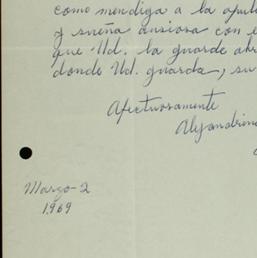 como mendiga a la
y sueña ansiosa con
que Ud. la guarde
donde Ud. guarda, su
Afectuosamente
Marzo-2
1969